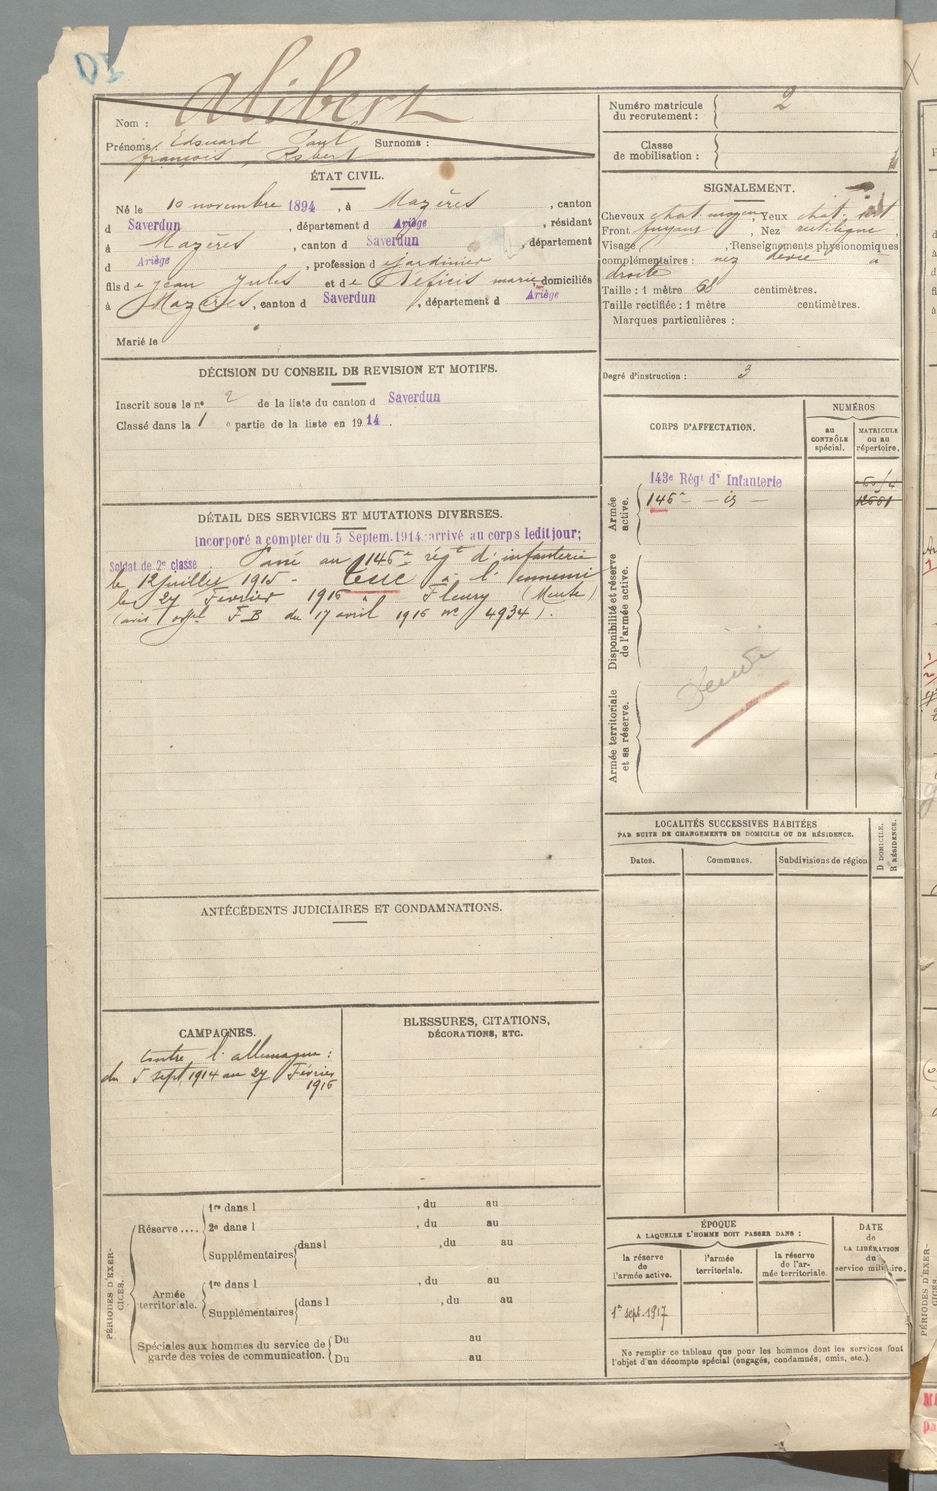 Alibert
Nom :
Prénoms : Edouard Paul Surnoms :
françois, Robert
Numéro matricule du recrutement : 2
Classe de mobilisation :
ÉTAT CIVIL.
Né le 10 novembre 1894, à Mazères, canton
d Saverdun, département d Ariège, résidant
à Mazères, canton d Saverdun, département
d Ariège, profession d jardinier
fils de Jean Jules et de marie, domiciliés
à Mazères, canton d Saverdun, département d Ariège
Marié le
SIGNALEMENT.
Cheveux chat. moyen, Yeux chat.
Front fuyant, Nez rectiligne,
Visage , Renseignements physionomiques
complémentaires : nez dévié à
droite
Taille : 1 mètre centimètres.
Taille rectifiée : 1 mètre centimètres.
Marques particulières :
Degré d'instruction : 3
DÉCISION DU CONSEIL DE REVISION ET MOTIFS.
Inscrit sous le nº 2 de la liste du canton d Saverdun
Classé dans la 1 e partie de la liste en 1914.
DÉTAIL DES SERVICES ET MUTATIONS DIVERSES.
Incorporé à compter du 5 Septem. 1914 arrivé au corps ledit jour;
Soldat de 2e classe. Passé au 146e régt d'infanterie
le 12 juillet 1915. Tué à l'ennemi
le 27 Février 1916 à Fleury (Meuse)
(avis offel F.B du 17 avril 1916 nº 4934).
CORPS D'AFFECTATION.
NUMÉROS
au CONTRÔLE spécial.
MATRICULE ou au répertoire.
Armée active.
143e Régt d'Infanterie
146e - id -
Disponibilité et réserve de l'armée active.
Armée territoriale et sa réserve.
LOCALITÉS SUCCESSIVES HABITÉES
PAR SUITE DE CHANGEMENTS DE DOMICILE OU DE RÉSIDENCE.
Dates. Communes. Subdivisions de région
D DOMICILE.
R RÉSIDENCE.
ANTÉCÉDENTS JUDICIAIRES ET CONDAMNATIONS.
CAMPAGNES.
Contre l'allemagne :
du 5 sept 1914 au 27 Février
1916
BLESSURES, CITATIONS,
DÉCORATIONS, ETC.
PÉRIODES D'EXERCICES.
Réserve ....
1re dans l , du au
2e dans l , du au
Supplémentaires dans l , du au
Armée territoriale.
1re dans l , du au
Supplémentaires dans l , du au
Spéciales aux hommes du service de
garde des voies de communication.
Du au
Du au
ÉPOQUE
A LAQUELLE L'HOMME DOIT PASSER DANS :
la réserve de l'armée active.
l'armée territoriale.
la réserve de l'armée territoriale.
DATE
de
LA LIBÉRATION
du
service militaire.
1er sept. 1917
Ne remplir ce tableau que pour les hommes dont les services font
l'objet d'un décompte spécial (engagés, condamnés, omis, etc.).
PÉRIODES D'EXER-